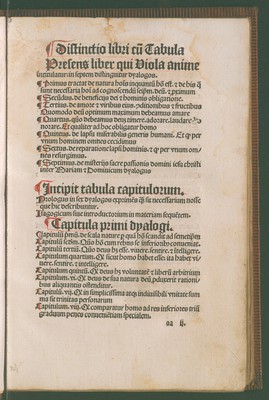 Distinctio libri cū Tabula
Presens liber qui Viola anime
intitulatur: in septem distinguitur dyalogos.
¶ Primus tractat de natura hoīs inquantū hō est. ⁊ de his q̄
sunt necessaria hoī ad cognoscendū seip̄m. deū. ⁊ primum
¶ Secūdus. de beneficijs dei ⁊ hominis obligatione.
¶ Tertius. de amore ⁊ viribus eius. ⁊ditionibus ⁊ fructibus
Quomodo deū optimum maximum debeamus amare
¶ Quartus. quō debeamus deū timere. adorare. laudare ⁊
norare. Et qualiter ad hoc obligatur homo
¶ Quintus. de lapsu miserabili generis humani. Et q per
vnum hominem omnes cecidimus
¶ Sextus. de reparatione lapsi hominis. ⁊ q per vnum om-
nes resurgimus.
¶ Septimus. de misterijs sacre passionis domini iesu christi
inter Mariam ⁊ Dominicum dyalogus
¶ Incipit tabula capitulorum.
Prologus in sex dyalogos exprimēs q̄ sit necessarium nosse
que hic describuntur.
Isagogicum siue introductorium in materiam sequētem.
¶ Capitula primi dyalogi.
Capitulū pmū. de scala nature p quā hō scandit ad semetip̄m
Capitulū scd̄m. Quō hō cum rebus se inferioribus conueniat.
Capitulū tertiū. Quō deus hȝ esse. viuere. sentire. ⁊ intelligere.
Capitulum quartum. Q sicut homo habet esse: ita habet vi-
uere. sentire. ⁊ intelligere.
Capitulum quintū. Q deus hȝ voluntatē ⁊ liberū arbitrium
Capitulum. vi. Q deus de sua natura deū
bus aliquantis ostenditur.
Capitulum. vij. Q in simplicissima atqȝ indiuisibili vnitate sum
ma sit trinitas personarum
Capitulum. viij. Q comparatur homo ad res inferiores triū
graduum penes conuenientiam specialem.
aa ij.